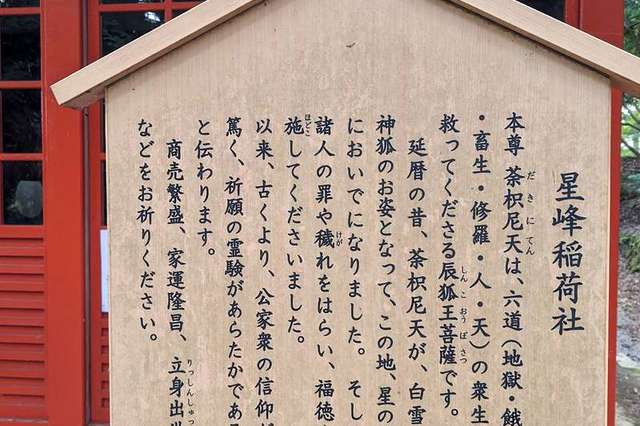 星峰稲荷社
本尊 荼枳尼天は、六道(地獄・餓
だきにてん
・畜生・修羅・人・天)の衆生
救ってくださる辰狐王菩薩です。
しんこおうぼさつ
延暦の昔、荼枳尼天が、白雪
神狐のお姿となって、この地、星の
においでになりました。そし
諸人の罪や穢れをはらい、福徳
けが
施してくださいました。
ほどこ
以来、古くより、公家衆の信仰が
篤く、祈願の霊験があらたかである
と伝わります。
商売繁盛、家運隆昌、立身出世
りっしんしゅっ
などをお祈りください。